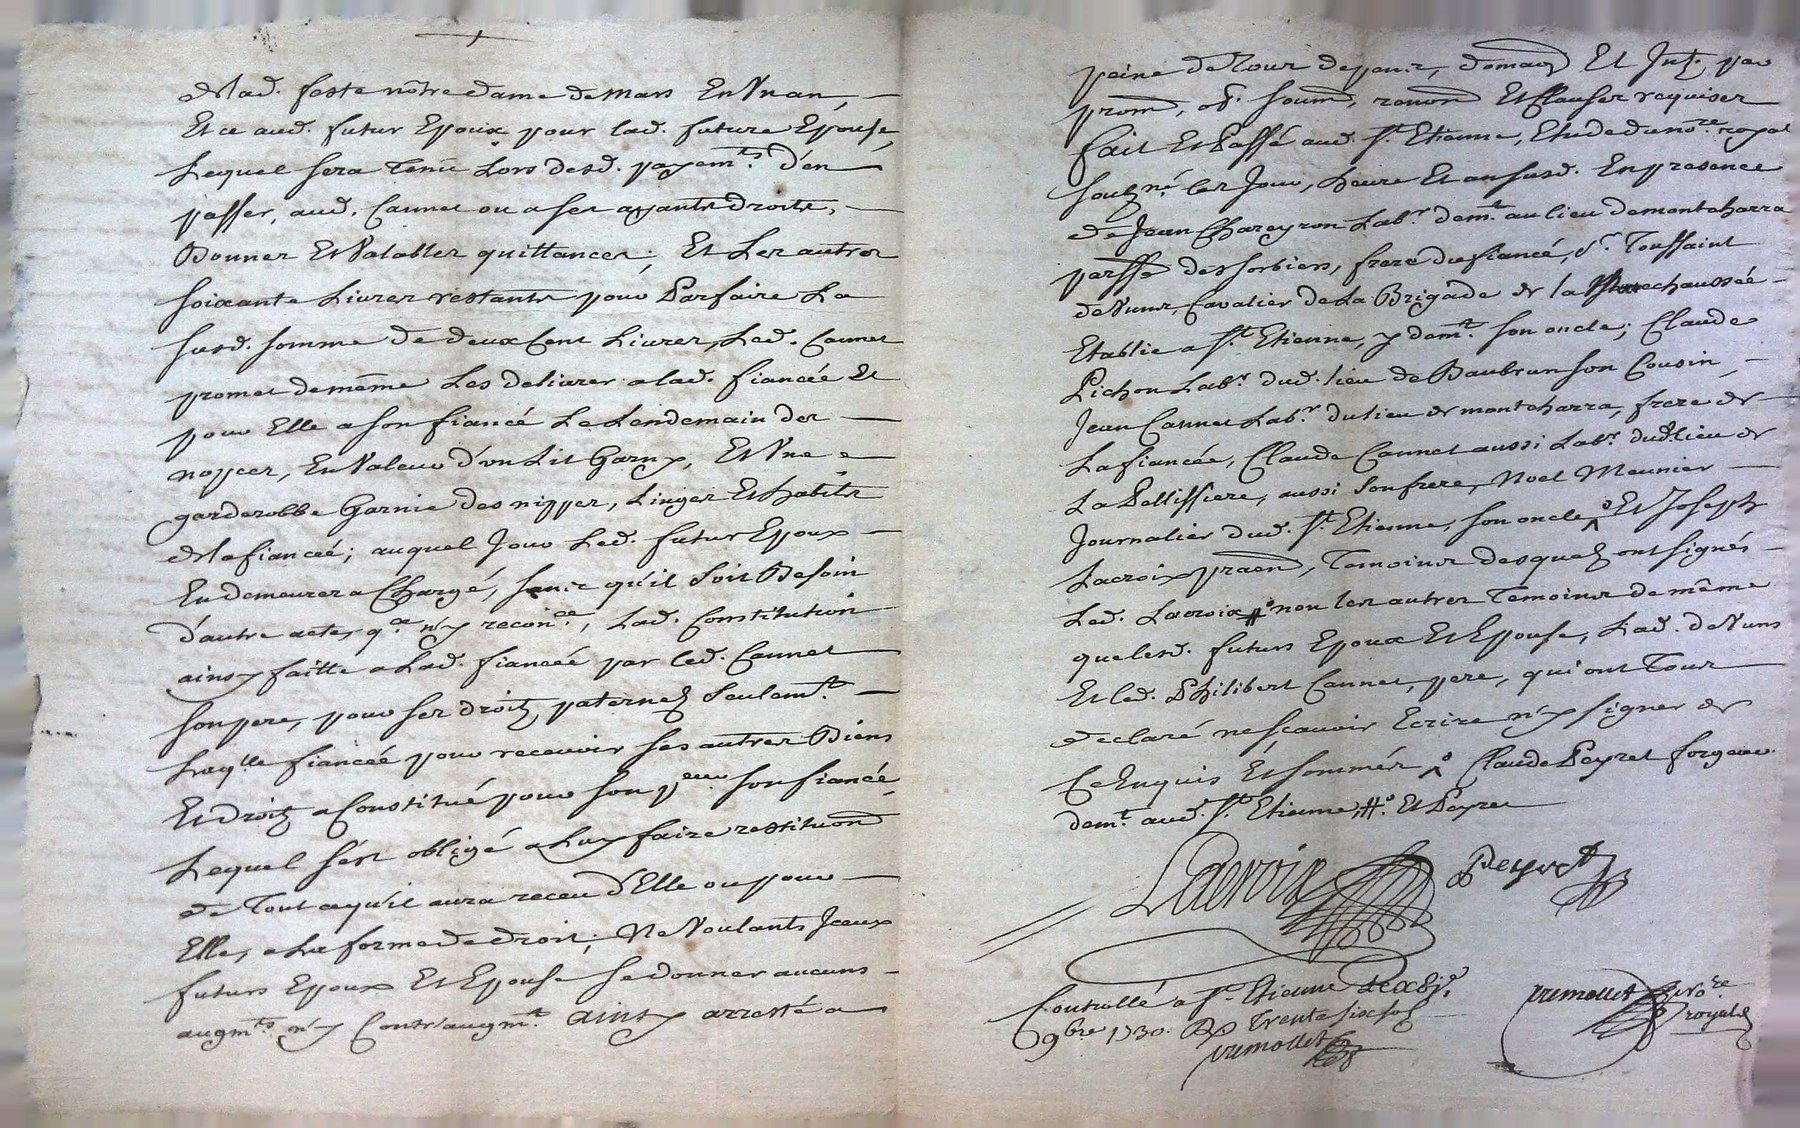 de lad. feste nôtre dame de mars En Vn an,
Et ce aud. futur Epoux pour lad. future Epouse,
Lequel sera tenu Lors desd. payemts. d'en
passer, aud. Cannet ou a ses ayants droits,
Bonner Et Valables quittances; Et Les autres
soixante Livres restants pour Parfaire La
susd. somme de deux Cent Livres, Led. Cannet
promet de même Les delivrer a lad. fiancée Et
pour Elle a son fiancé Le Lendemain des
nopces, En Valeur d'vn Lit Garny, Et Vne
garderobbe Garnie des nippes, Linges Et habits
de la fiancéé; auquel Jour Led. futur Epoux
En demeurera Chargé, sans qu'il soit Besoin
d'autre acte, qce. n'y reconce., Lad. Constitution
ainsy faitte a Lad. fiancéé par led. Cannet
son pere, pour ses droits paternels seulemt.
Laqlle fiancéé pour recevoir ses autres Biens
Et droits a Constitué pour son preur. son fiancé,
Lequel s'est obligé a Luy faire restituon
de Tout ce qu'il aura receu d'Elle ou pour
Elle, a La forme de droit; Ne Voulants Jceux
futurs Epoux Et Epouse se donner aucuns
augmts. n'y Contr'augmt. ainsy arresté a
peine de tous depens, domag Et Jnt. par
prom, ob. soum, renon Et Clauses requises
fait Et Passé aud. St. Etienne, Etude du nore. royal
soubzné. les Jour, heure Et an susd. En presence
de Jean Chareyron Labr. demt. au lieu de montcharra
parsse des sorbiers, frere du fiancé, sr. Toussaint
de Vuns, Cavalier de La Brigade de la Marechaussée
Etablie a St. Etienne, y demt. son oncle; Claude
Pichon Labr. dud. lieu de Baubrun son Cousin,
Jean Cannet Labr. du lieu de montcharra, frere de
La fiancée, Claude Cannet aussi Labr. dud. lieu de
La Pellissiere, aussi son frere, Noel Meunier
Journalier dud. St. Etienne, son oncle, Et Joseph
Lacroix praen, Temoins desquels ont signés
Led. Lacroix # non les autres Temoins de même
que lesd. futurs Epoux Et Epouse, Led. de Vuns
Et led. Philibert Cannet, pere, qui ont Tous
declaré ne sçavoir Ecrire n'y signer de
Ce Enquis Et sommés Claude Peyret forgeur
demt. aud. St. Etienne, # Et Peyret
Lacroix Peyret
Controllé a St. Etienne
9bre 1730. R Trente six sols
vremollet
vremollet nore.
royal